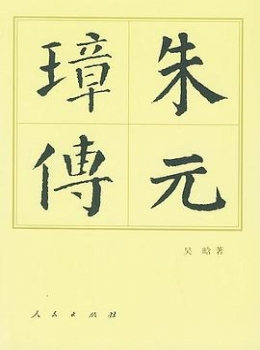 朱元
璋傳
吴晗著
人民出版社